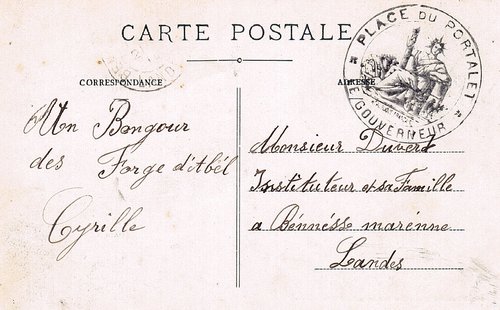 CARTE POSTALE
CORRESPONDANCE
ADRESSE
PLACE DU PORTALET
LE GOUVERNEUR
Un Bongour
des Forge d'Abél
Cyrille
Monsieur Duvert
Instituteur et sa Famille
a Bénnésse marénne
Landes